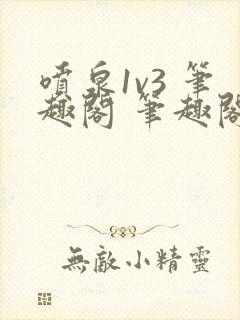 噴泉1v3 筆
趣閣 筆趣閣
無敵小精靈